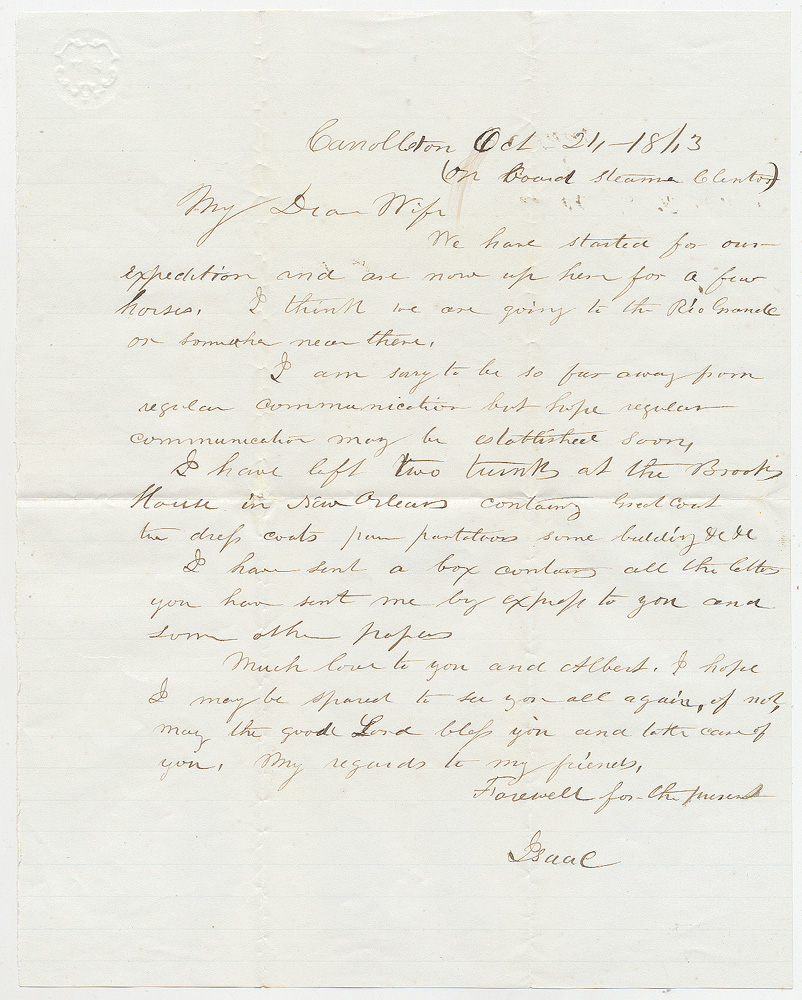 Carrollton Oct 24 - 1863
(On Board Steamer Clinton)
My Dear Wife
We have started for our
expedition and are now up here for a few
horses. I think we are going to the Rio Grande
or somewher near there.
I am sorry to be so far away from
regular communication but hope regular
communication may be established soon,
I have left two trunks at the Brooks
House in New Orleans containg Great Coat
two dress coats pair pantaloons some bedding &c &c
I have sent a box containg all the letters
you have sent me by express to you and
some other papers
Much love to you and Albert. I hope
I may be spared to see you all again, if not,
may the good Lord bless you and take care of
you. My regards to my friends,
Farewell for the present
Isaac